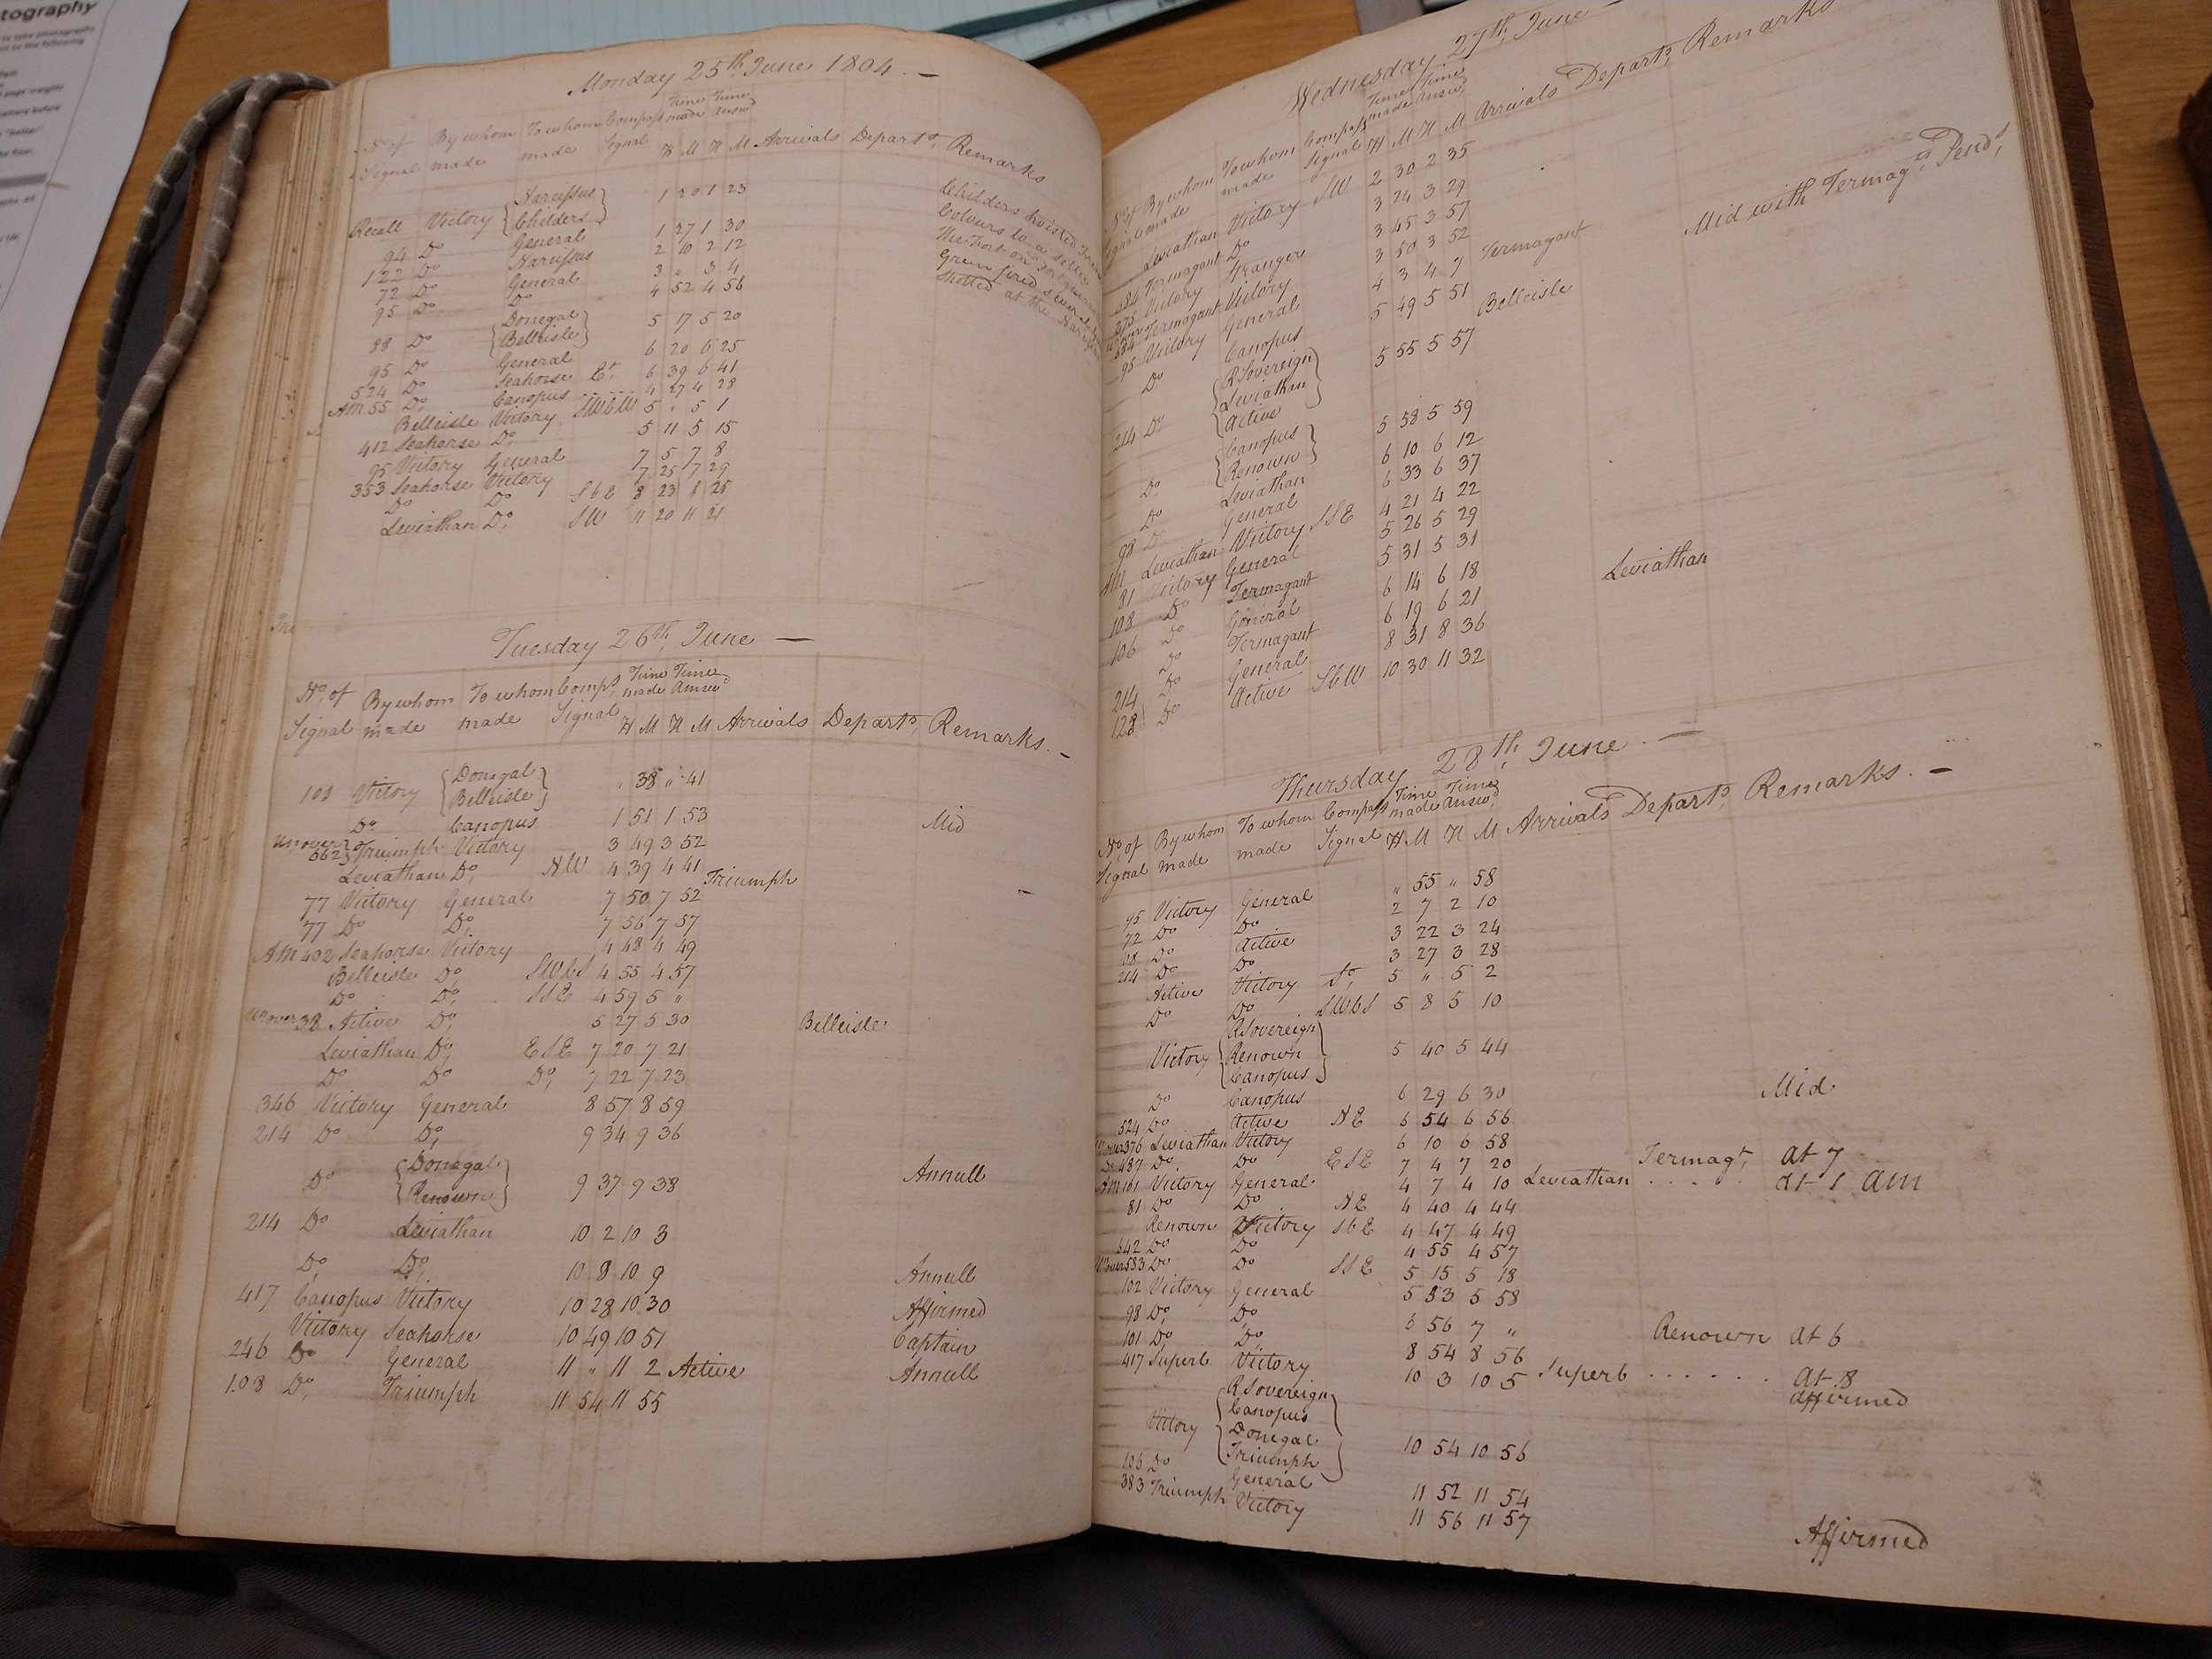 tography
Monday 25th June 1804. —
No. of By whom To whom Compass Time Time
Signal made made Signal made Answd
H M H M Arrivals Departs, Remarks
Narcissus
Recall Victory Childers 1 20 1 23
94 Do General 1 27 1 30
122 Do Narcissus 2 10 2 12
72 Do General 3 " 3 4
95 Do Do 4 52 4 56
Donegal
88 Do Belleisle 5 17 5 20
95 Do General 6 20 6 25
524 Do Seahorse Et. 6 39 6 41
AM 55 Do, Canopus 4 27 4 28
Belleisle Victory SWbW 5 " 5 1
412 Seahorse Do, 5 11 5 15
95 Victory General 7 5 7 8
353 Seahorse Victory 7 25 7 29
Do Do SbE 8 23 8 25
Leviathan Do, SW 11 20 11 21
Childers hoisted
Colours to a
The Fort on
Green fired several
Shotted at the
Tuesday 26th, June —
No, of By whom To whom Comps, Time Time
Signal made made Signal made Answd
H M H M Arrivals Departs, Remarks. —
Donegal
103 Victory Belleisle " 38 " 41
Do Canopus 1 51 1 53 Mid
Unover 662 Triumph Victory 3 49 3 52
Leviathan Do, NW 4 39 4 41 Triumph
77 Victory General 7 50 7 52
77 Do Do, 7 56 7 57
AM 402 Seahorse Victory 4 48 4 49
Belleisle Do, SWbS 4 55 4 57
Do Do, SSE 4 59 5 "
Unover 38 Active Do, 5 27 5 30 Belleisle
Leviathan Do, ESE 7 20 7 21
Do Do Do, 7 22 7 23
346 Victory General 8 57 8 59
214 Do Do, 9 34 9 36
Donegal
Do, Renown 9 37 9 38 Annull
214 Do Leviathan 10 2 10 3
Do, Do, 10 8 10 9 Annull
417 Canopus Victory 10 28 10 30 Affirmed
Victory Seahorse 10 49 10 51 Captain
246 Do General 11 " 11 2 Active Annull
108 Do, Triumph 11 54 11 55
Wednesday 27th, June —
No, of By whom To whom Compass Time Time
Signal made made Signal made Answd
H M H M Arrivals Departs, Remarks
Leviathan Victory SW 2 30 2 35
Termagant Do 3 24 3 29
275 Victory Stranger 3 45 3 57
634 Termagant Victory 3 50 3 52 Termagant Mid with Termagts, Pends,
95 Victory General 4 3 4 7
Do Canopus 5 49 5 51 Belleisle
RSovereign
Leviathan
214 Do Active 5 55 5 57
Canopus
Do. Renown 5 58 5 59
Do Leviathan 6 10 6 12
98 Do General 6 33 6 37
AM Leviathan Victory SSE 4 21 4 22
81 Victory General 5 26 5 29
108 Do Termagant 5 31 5 31
106 Do General 6 14 6 18 Leviathan
Do Termagant 6 19 6 21
214 Do General 8 31 8 36
128 Do Active SbW 10 30 11 32
Thursday 28th, June. —
No, of By whom To whom Compass Time Time
Signal made made Signal made Answd,
H M H M Arrivals Departs, Remarks. —
95 Victory General " 55 " 58
72 Do Do 2 7 2 10
108 Do Active 3 22 3 24
214 Do Do 3 27 3 28
Active Victory So, 5 " 5 2
Do Do SWbS 5 8 5 10
RSovereign
Victory Renown 5 40 5 44
Canopus
Do Canopus 6 29 6 30 Mid
524 Do Active NE 6 54 6 56
376 Leviathan Victory 6 10 6 58
487 Do, Do ESE 7 4 7 20 Termagt, at 7
AM 161 Victory General 4 7 4 10 Leviathan . . . . . at 1 am
81 Do Do NE 4 40 4 44
Renown Victory SbE 4 47 4 49
642 Do Do 4 55 4 57
Unover 583 Do Do SSE 5 15 5 18
102 Victory General 5 53 5 58
98 Do, Do, 6 56 7 " Renown at 6
101 Do, Do, 8 54 8 56
417 Superb Victory 10 3 10 5 Superb . . . . . . at 8
affirmed
RSovereign
Canopus
Victory Donegal 10 54 10 56
Triumph
106 Do General 11 52 11 54
383 Triumph Victory 11 56 11 57 Affirmed